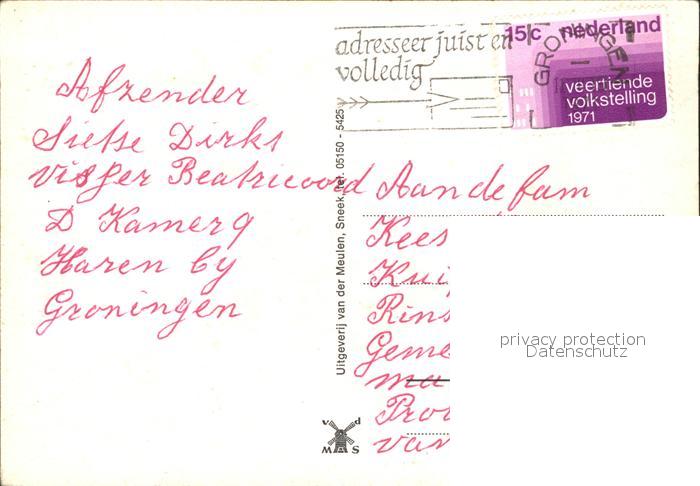 Afzender
Sietse Dirks
Visser Beatrixoord
D Kamer 9
Haren by
Groningen
adresseer juist en
volledig
15c nederland
veertiende
volkstelling
1971
GRONINGEN
Uitgeverij van der Meulen, Sneek, Tel. 05150 - 5425
v d
MAS
Aan de fam
Kees
Kui
Rins
Geme
ma
Pro
van
privacy protection
Datenschutz